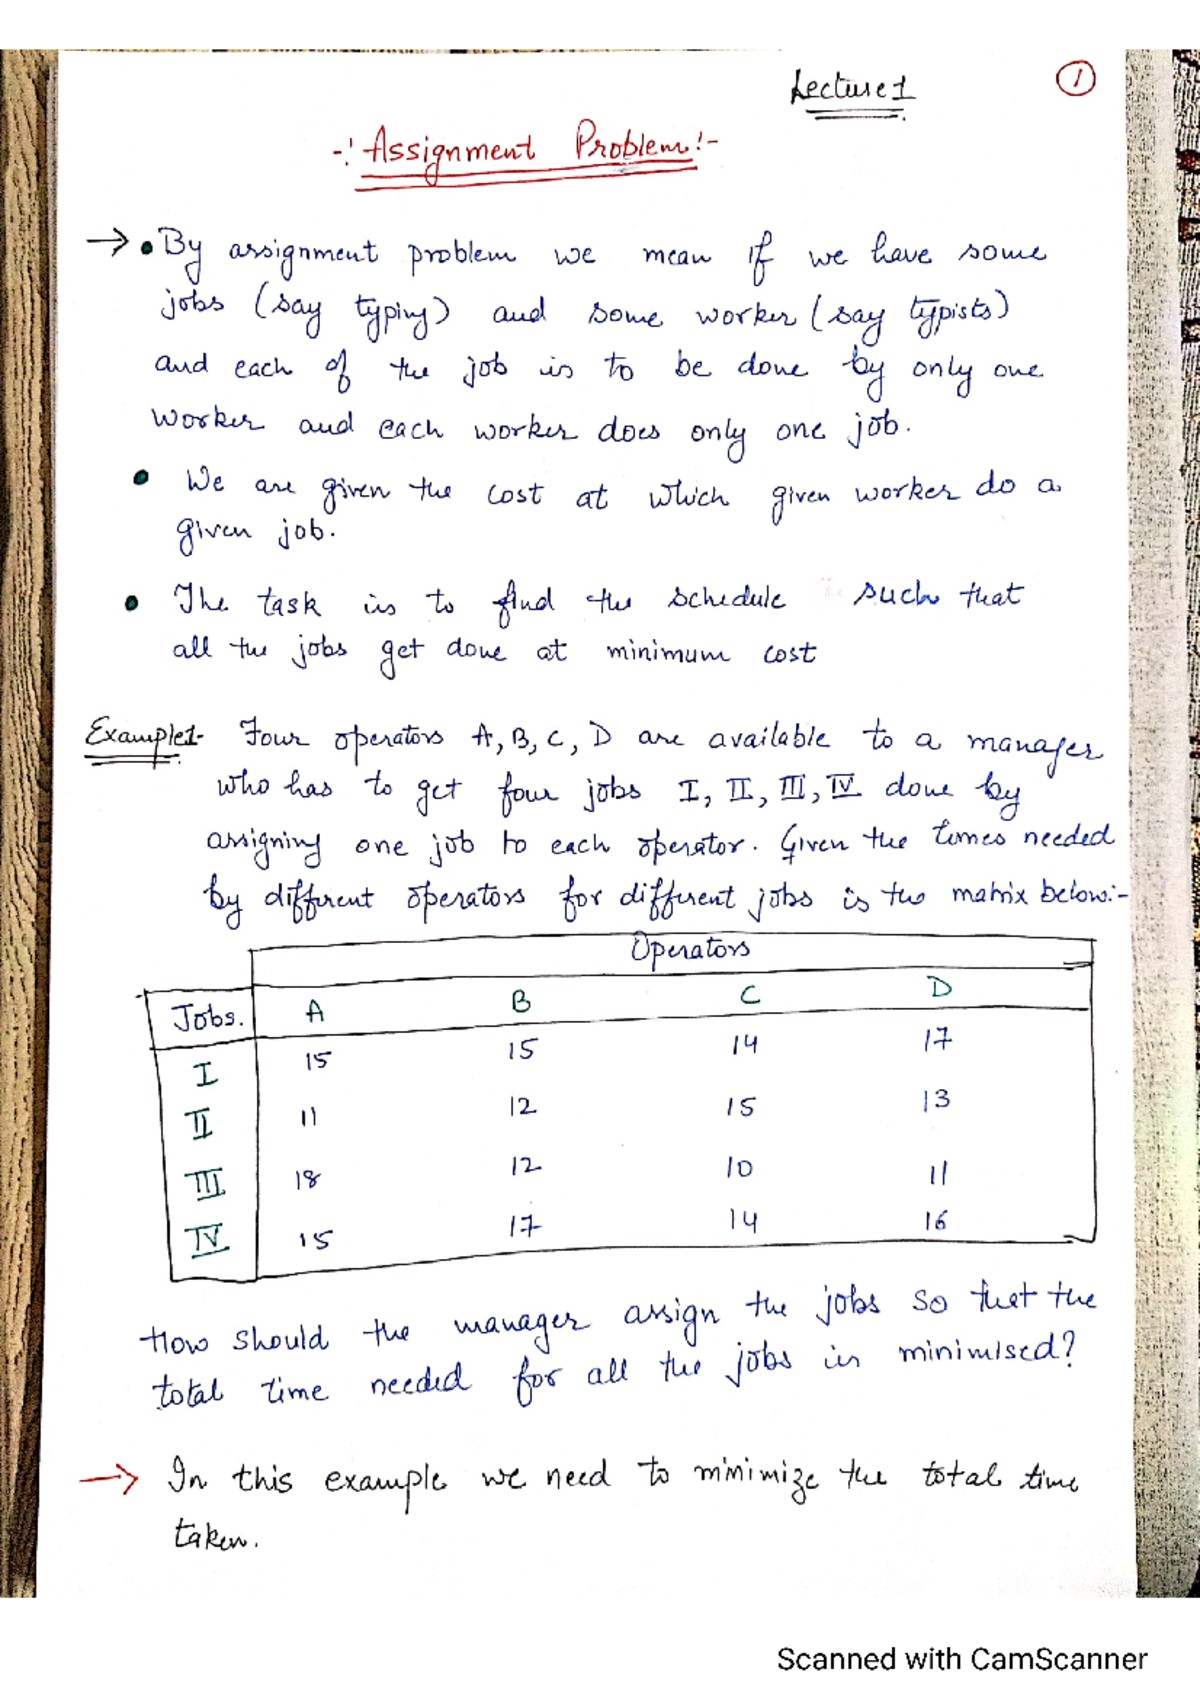 Lecture 1
1
-: Assignment Problem :-
→ • By assignment problem we mean if we have some
jobs (say typing) and some worker (say typists)
and each of the job is to be done by only one
worker and each worker does only one job.
• We are given the cost at which given worker do a
given job.
• The task is to find the schedule such that
all the jobs get done at minimum cost
Example1- Four operators A, B, C, D are available to a manager
who has to get four jobs I, II, III, IV done by
assigning one job to each operator. Given the times needed
by different operators for different jobs is the matrix below:-
Operators
Jobs. A B C D
I 15 15 14 17
II 11 12 15 13
III 18 12 10 11
IV 15 17 14 16
How should the manager assign the jobs so that the
total time needed for all the jobs is minimised?
→ In this example we need to minimize the total time
taken.
Scanned with CamScanner